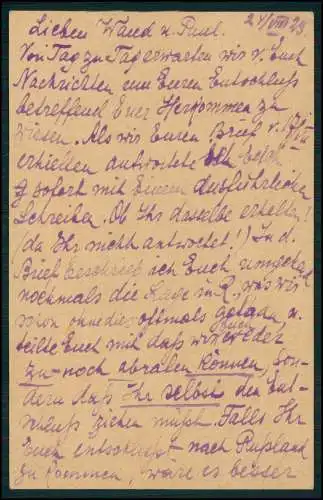 24/VIII 23
Lieben Wand u. Paul.
Von Tag zu Tag erwarten wir v. Euch
Nachrichten um Euren Entschluß
betreffend Euer Herkommen zu
wissen. Als wir Euren Brief v.
erhielten antwortete
sofort mit Einem ausführlichen
Schreiben. Ob Ihr dasselbe erhalten?
(da Ihr nicht antwortet!) In d.
Brief beschrieb ich Euch umgehend
nochmals die Lage in R, was wir
schon ohnedies oftmals getan u.
teilte Euch mit daß wir Ihnen weder
zu- noch abraten können, son-
dern daß Ihr selbst den Ent-
schluß ziehen müßt. Falls Ihr
Euch entschließt nach Rußland
zu kommen, wäre es besser